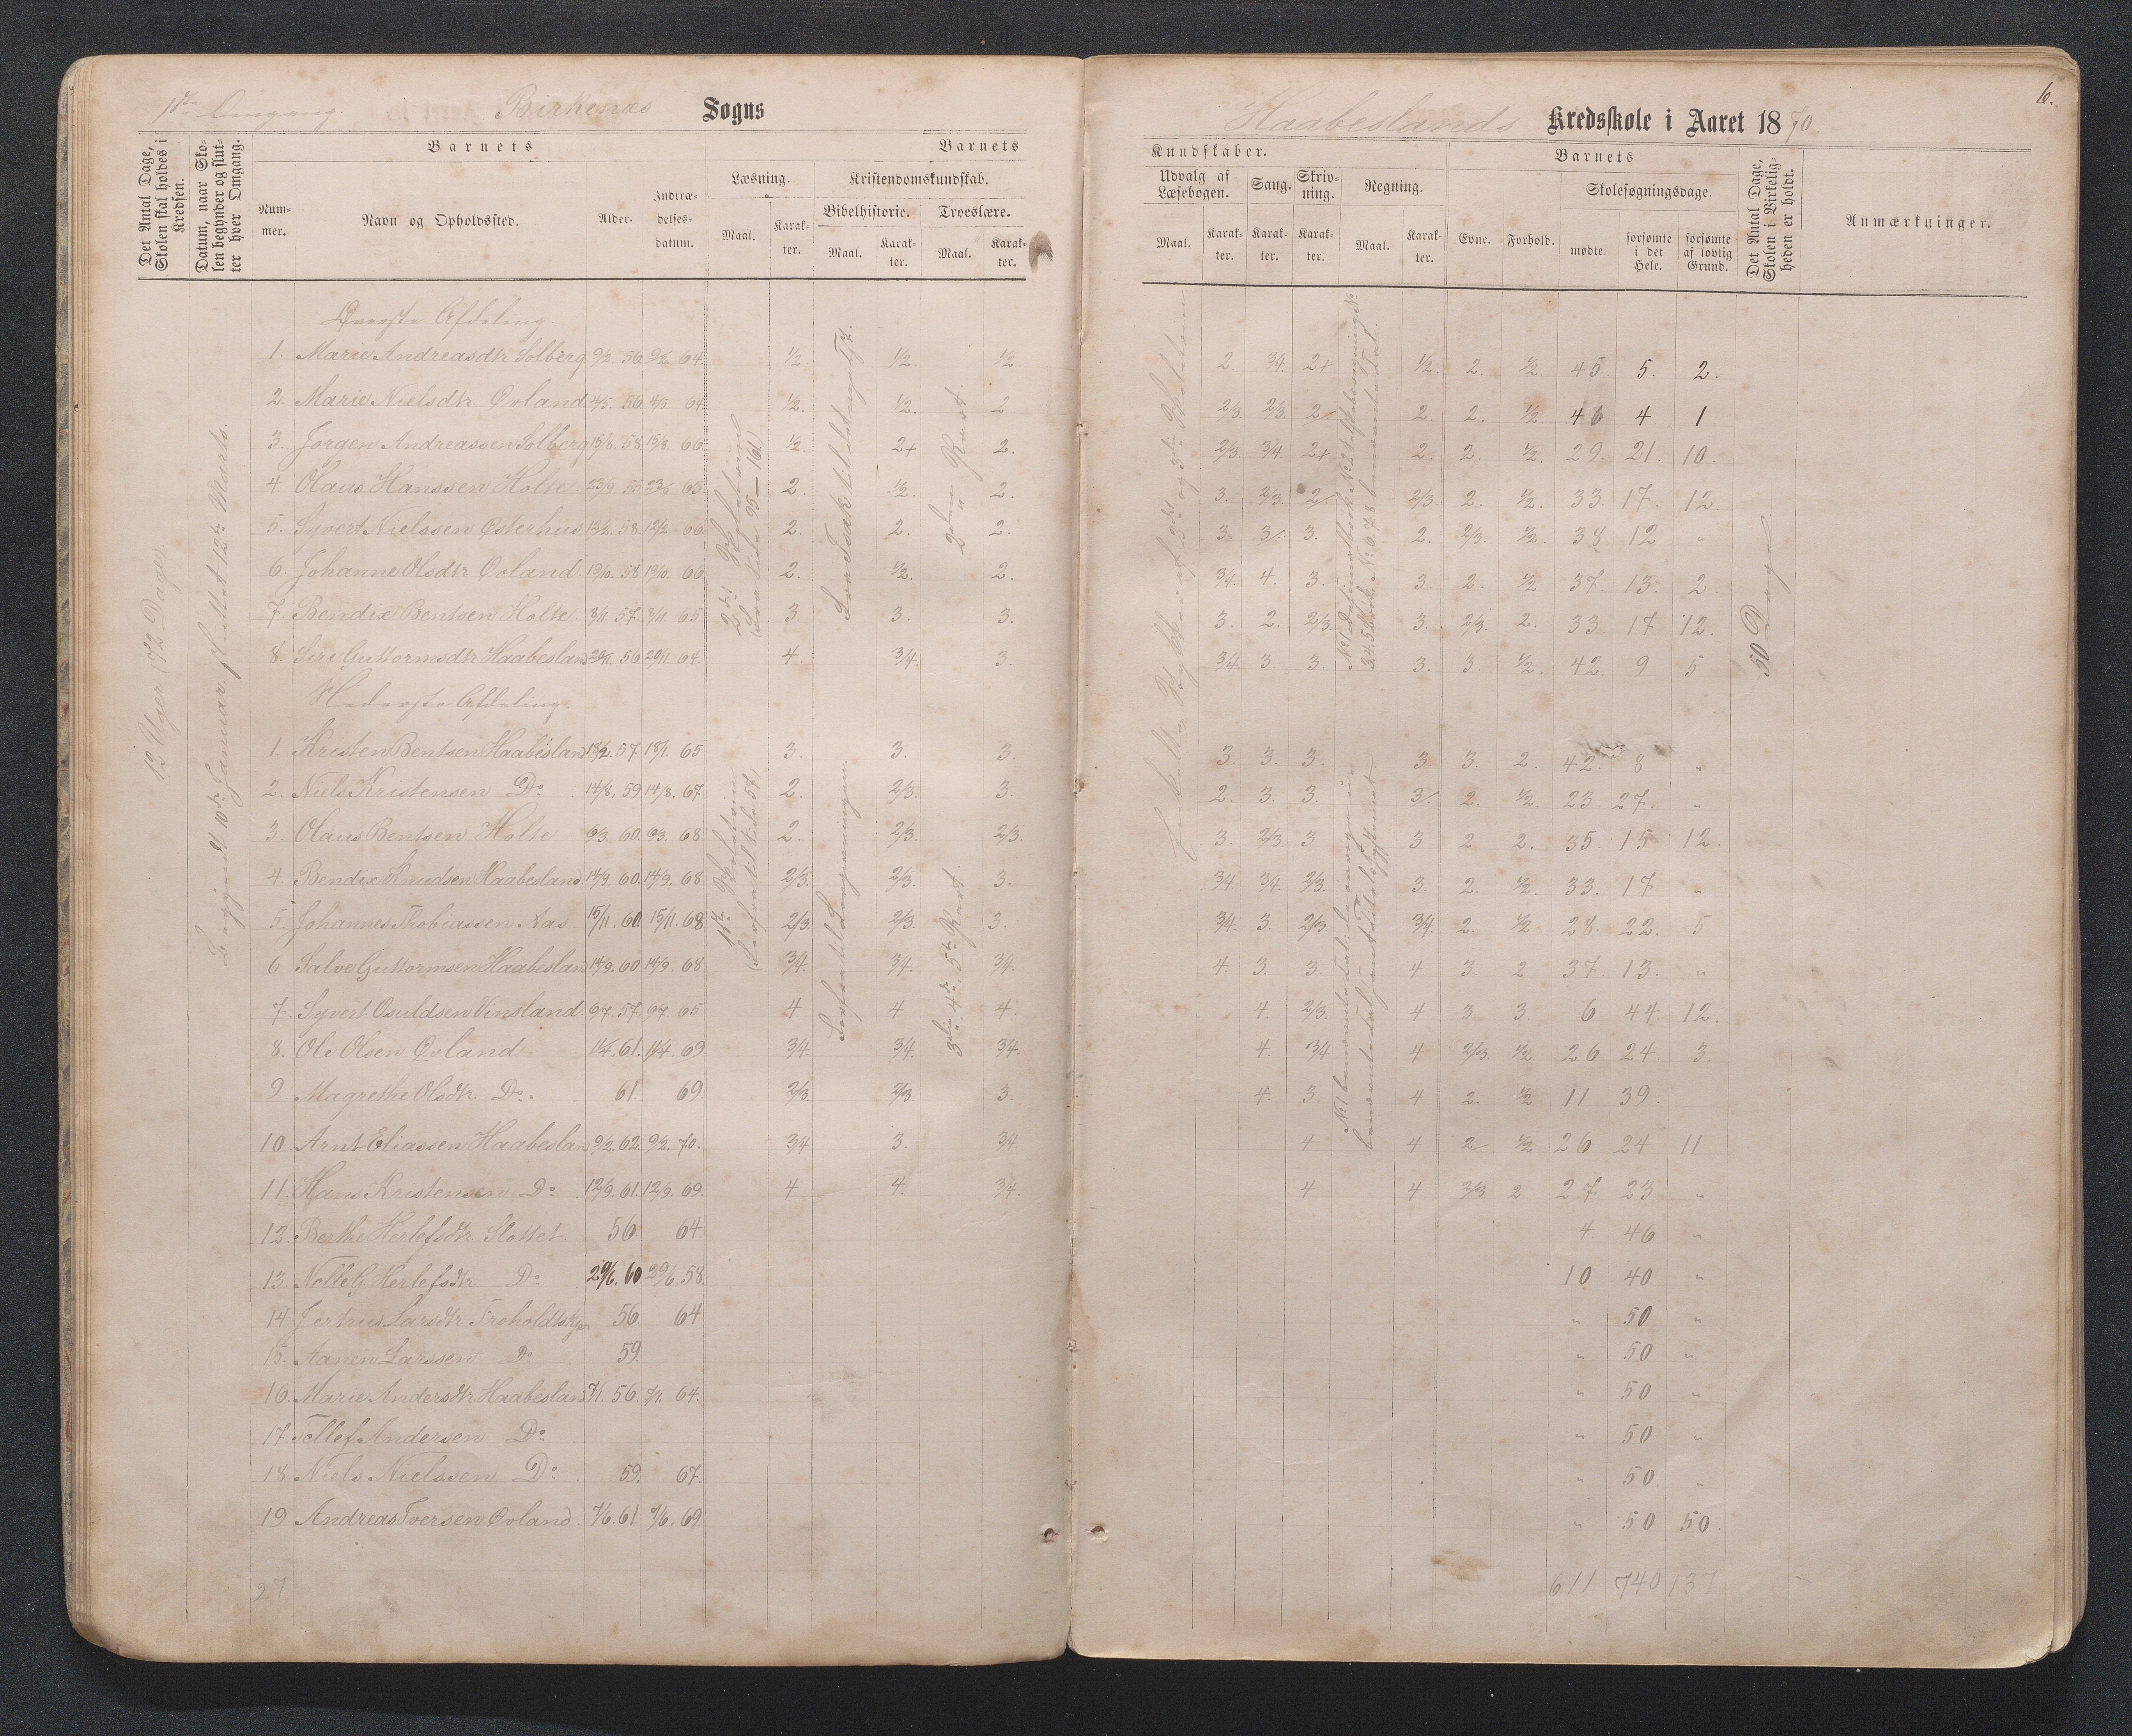 1ste Omgang. Birkenæs Sogns
Det Antal Dage, Skolen skal holdes i Kredsen.
Datum, naar Skolen begynder og slutter hver Omgang.
Barnets
Barnets
Nummer.
Navn og Opholdssted.
Alder.
Indtrædelsesdatum.
Læsning.
Kristendomskundskab.
Maal.
Karakter.
Bibelhistorie.
Troeslære.
Maal.
Karakter.
Maal.
Karakter.
12 Uger (72 Dage)
Begyndt 10de Januar sluttet 12te Marts.
Øverste Afdeling.
1. Marie Andreasdtr Solberg 9/2. 56 9/2 64. 1/2 1/2. 1/2.
2. Marie Nielsdtr Ovland 4/5. 56. 4/5 64. 1/2. 1/2. 2
3. Jørgen Andreassen Solberg 15/8. 58. 15/8. 66. 1/2. 2+ 2.
4 Olaus Hanssen Holte. 23/9. 55. 63. 2. 1/2. 2.
5. Syvert Nielssen Østerhus 12/2. 58. 12/2 66. 2. 2. 2.
6. Johanne Olsdtr Ovland 19/10. 58 19/10. 66. 2. 1/2. 2.
7. Bendix Bentsen Holte. 3/11. 57. 3/11. 65. 3. 3. 3.
8. Siri Guttormsdtr Haabesland 56 29/11. 64. 4. 3/4. 3.
Nederste Afdeling
1. Kristen Bentsen Haabesland 18/2. 57. 18/1. 65 3. 3. 3.
2. Niels Kristensen Do 14/8. 59 14/8. 67. 2. 2/3. 3.
3. Olaus Bentsen Holte 6/3. 60. 6/3. 68 2. 2/3. 2/3.
4. Bendix Knudsen Haabesland 14/9. 60. 14/9. 68 2/3. 2/3. 3.
5. Johannes Thobiassen Aas 15/11. 60. 15/11. 68 2/3. 2/3. 3.
6 Salve Guttormsen Haabesland 14/9. 60 14/9. 68 3/4. 3/4. 3/4.
7. Syvert Osuldsen Vinsland 9/7. 57. 9/7. 65 4 4 4.
8. Ole Olsen Ovland. 1/4. 61. 1/4. 69 3/4. 3/4. 3/4.
9 Magrethe Olsdtr Do. 61 69. 2/3. 2/3 3
10. Arnt Eliassen Haabesland 9/2. 62. 9/2. 70. 3/4 3. 3/4
11. Hans Kristensen Do 12/9. 61. 12/9. 69. 4 4. 3/4.
12. Berthe Herlefsdtr. Slottet. 56 64
13. Herlefsdtr Do 29/6. 60 29/6. 58.
14 Jertrus Larsdtr 56 64
15. Aanen Larssen Do 59.
16. Marie Andersdtr Haabesland 7/1. 56. 7/1. 64.
17. Tellef Andersen Do
18 Niels Nielssen Do. 59. 67.
19 Andreas Iversen Ovland. 7/6. 61 7/6. 69.
27
(Fra Side 95 — 161)
Fra Isak til
2den Part.
(Læsfra til Side 57)
3die, 4de, 5te Part.
6.
Haabeslands Kredsskole i Aaret 1870
Kundskaber.
Barnets
Udvalg af Læsebogen.
Sang.
Skrivning.
Regning.
Skolesøgningsdage.
Det Antal Dage, Skolen i Virkeligheden er holdt.
Anmærkninger.
Maal.
Karakter.
Karakter.
Karakter.
Maal.
Karakter.
Evne.
Forhold.
mødte.
forsømte i det Hele.
forsømte af lovlig Grund.
2. 3/4. 2+ 1/2. 2. 1/2. 45. 5. 2.
2/3. 2/3. 2 2. 2. 1/2 46 4. 1
2/3. 3/4. 2+ 2. 2. 1/2. 29. 21. 10.
3. 2/3. 2. 2/3. 2. 1/2. 33. 17. 12.
3. 3. 3. 2. 2/3. 1/2. 38 12 "
3/4. 4. 3. 3. 2. 1/2 37. 13. 2.
3. 2. 2/3. 3. 2/3. 2. 33. 17 12.
3/4 3. 3. 3. 3. 1/2. 42. 9 5
50 Dage
3. 3. 3. 3. 3. 2. 42. 8 "
2. 3. 3. 3 2. 1/2. 23 27. "
3. 2/3. 3. 3 2 2. 35. 15 12.
3/4. 3/4. 2/3. 3. 2. 1/2. 33. 17 "
3/4. 3. 2/3. 3/4. 2. 1/2 28. 22. 5
4. 3. 3. 4. 3. 2 37. 13. "
4. 2/3. 4 3 3. 6 44. 12.
4. 3/4 4 2/3. 1/2 26 24. 3.
4. 3. 4 2. 1/2 11 39.
4 4 2 1/2 26 24 11
4 4 2/3 2 27. 23 "
4 46 "
10 40 "
" 50 "
" 50 "
" 50 "
" 50 "
" 50 "
" 50 50.
611 740 137